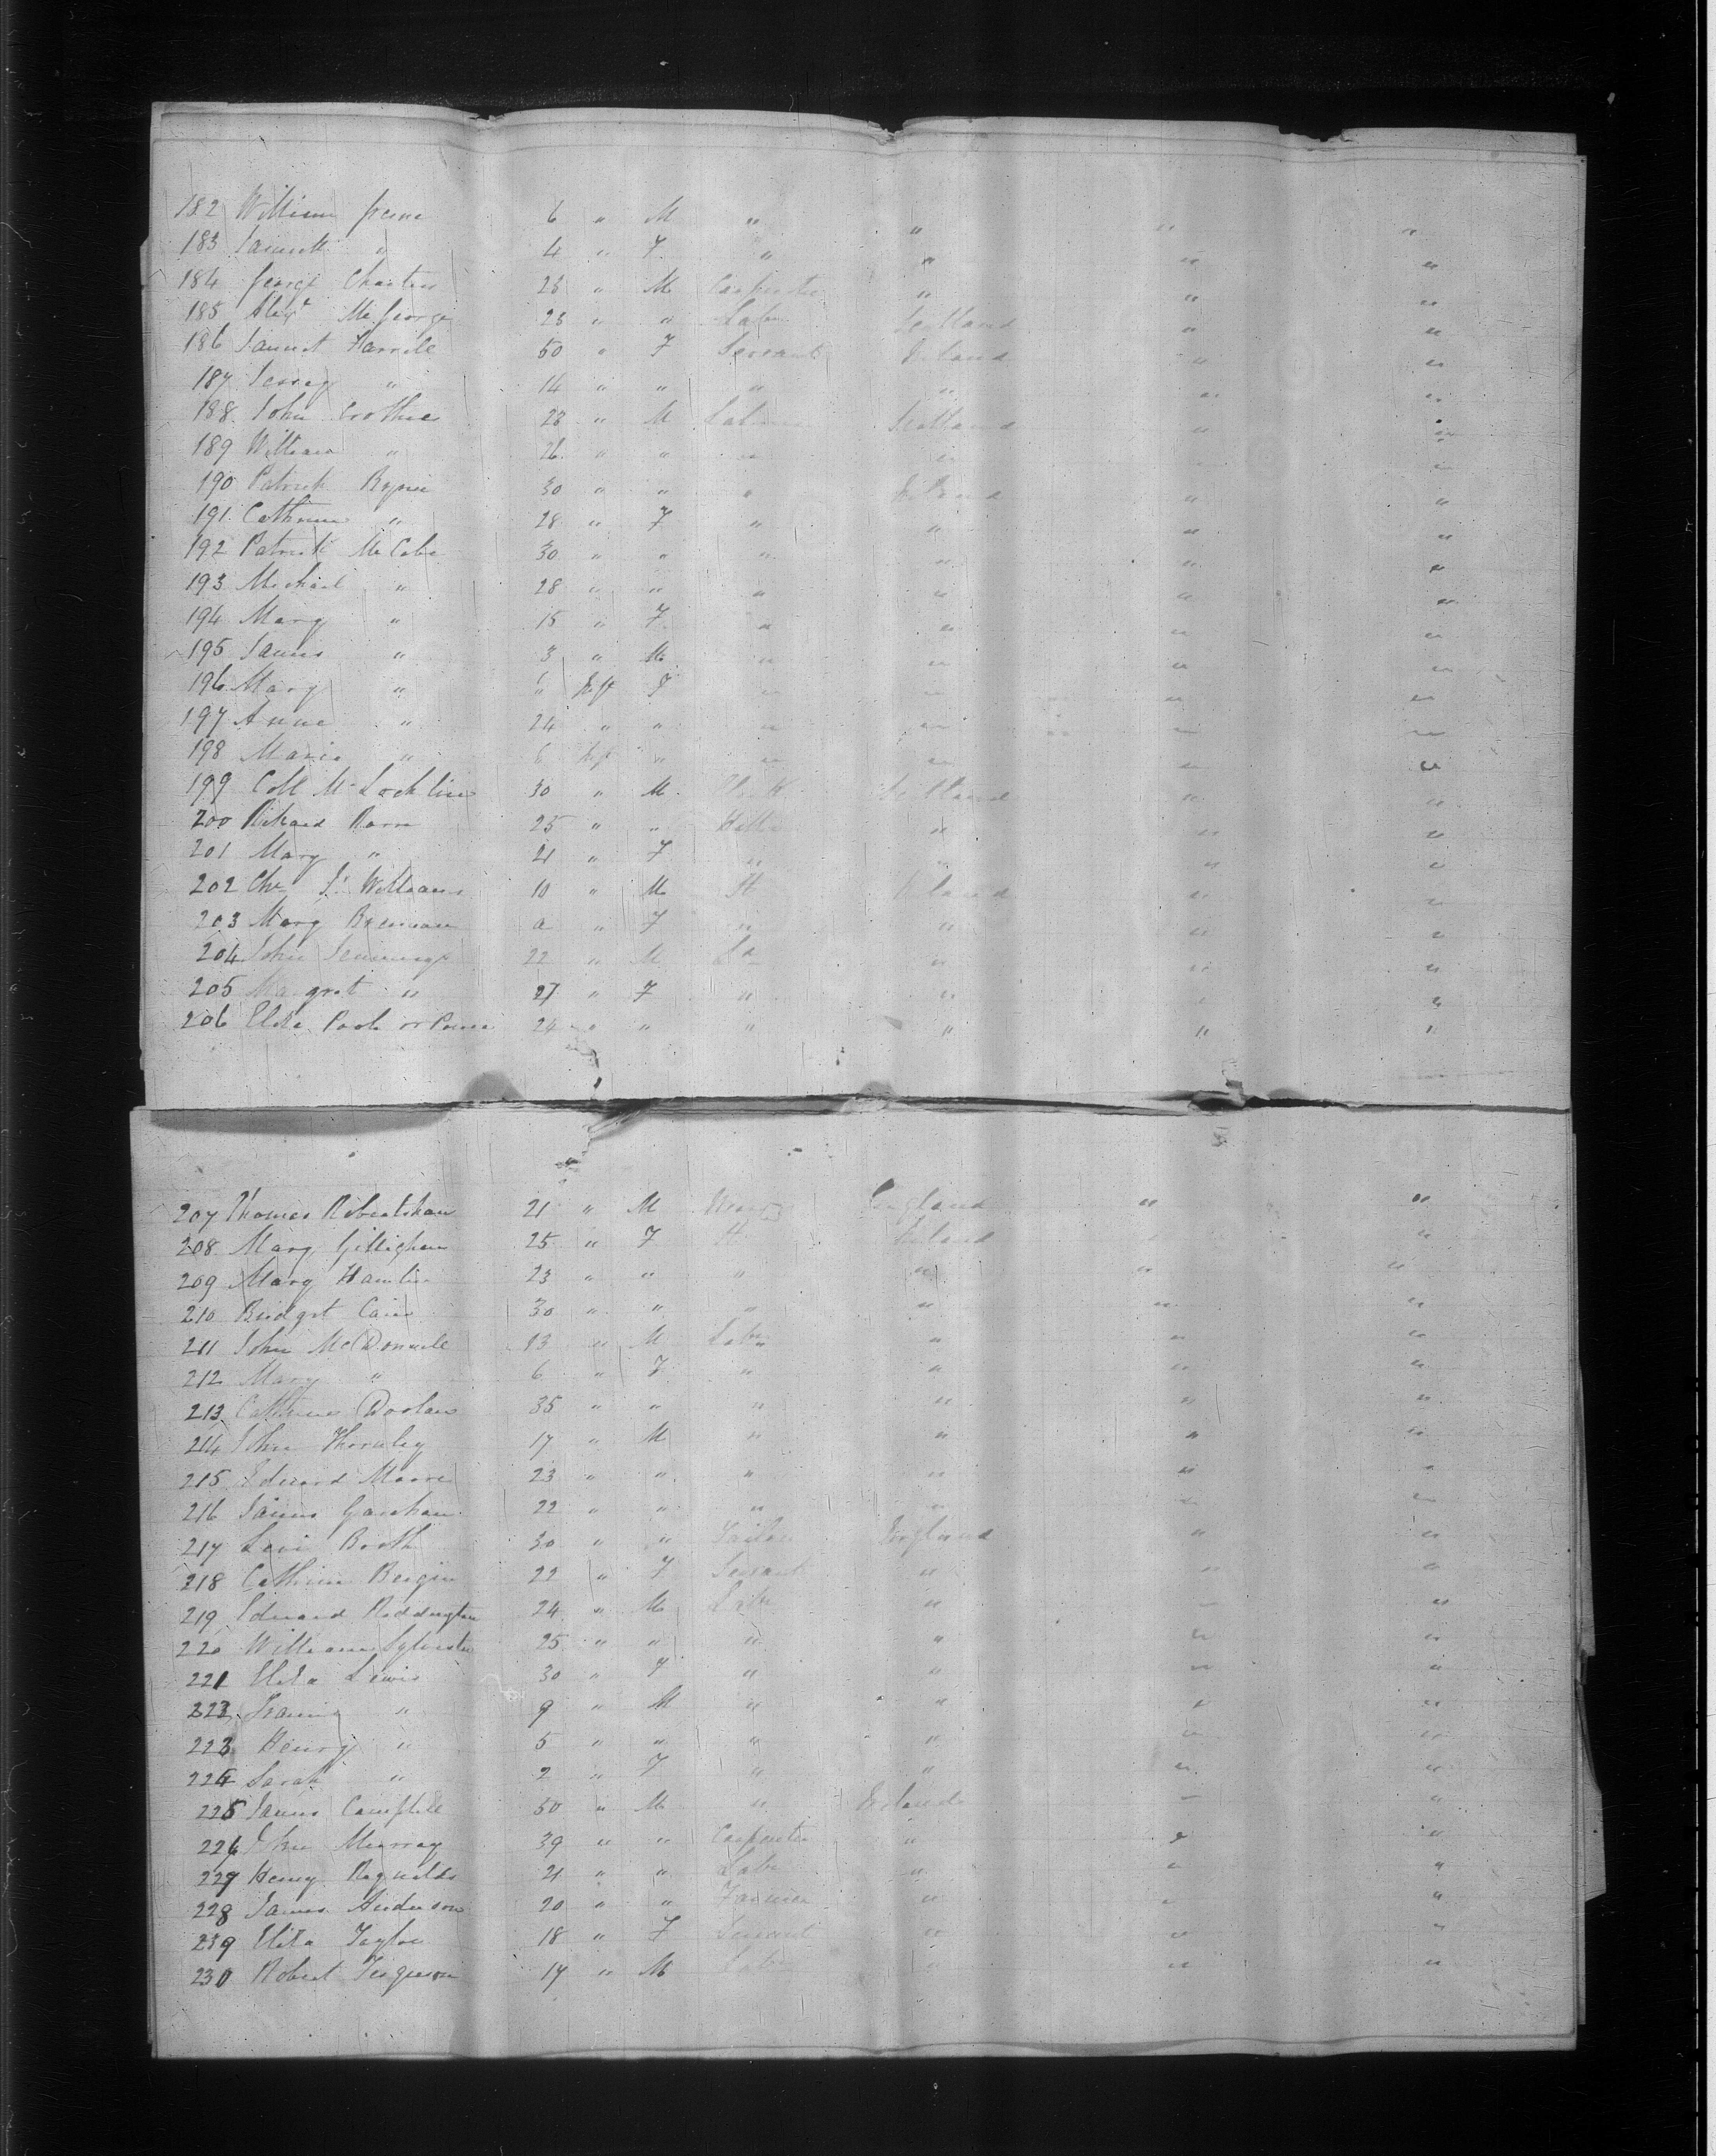 182 William Greene 6 " M " " " "
183 Jannett " 4 " F " " " "
184 George Charters 23 " M Carpenter " " "
185 Alexr McGeorge 23 " " Labr Scotland " "
186 Jannet Harrile 50 " F Servant Ireland " "
187 Jessey " 14 " " " " " "
188 John Crothie 23 " M Labourer Scotland " "
189 William " 26 " " " " " "
190 Patrick Bryne 30 " " " Ireland " "
191 Catherine " 28 " F " " " "
192 Patrick McCabe 30 " " " " " "
193 Michael " 28 " " " " " "
194 Mary " 15 " F " " " "
195 James " 3 " M " " " "
196 Mary " " Inft F " " " "
197 Anne " 24 " " " " " "
198 Maria " 6 Inft " " " " "
199 Coll McLochlin 30 " M Scotland " "
200 Richard Barr 25 " " " " "
201 Mary " 21 " F " " " "
202 Chs Williams 10 " M Ireland " "
203 Mary Brennan " F " " " "
204 John Jennings 22 " M " " "
205 Margret " 27 " F " " " "
206 Eliza Poole or 24 " " " " " "
207 Thomas Robertshaw 21 " M England " "
208 Mary Gillighan 25 " F Ireland "
209 Mary Hamlin 23 " " " " " "
210 Bridget Cain 30 " " " " " "
211 John McDonnell 13 " M Labr " " "
212 Mary " 6 " F " " " "
213 Catherine Doolan 35 " " " " " "
214 John Thornley 17 " M " " " "
215 Edward Moore 23 " " " " " "
216 James Garahan 22 " " " " " "
217 Levi Booth 30 " " Tailor England " "
218 Cathrine Bergin 22 " F Servant " " "
219 Edward Roddington 24 " M Labr " " "
220 William Sylvester 25 " " " " " "
221 Eliza Lewis 30 " F " " " "
222 " 9 " M " " " "
223 Henry " 5 " " " " " "
224 Sarah " 2 " F " " " "
225 James Campbell 50 " M " Ireland " "
226 John Murray 39 " " Carpenter " " "
227 Henry Reynolds 21 " " Labr " " "
228 James Anderson 20 " " Farmer " " "
239 Eliza Taylor 18 " F Servant " " "
230 Robert Ferguson 17 " M Labr " " "